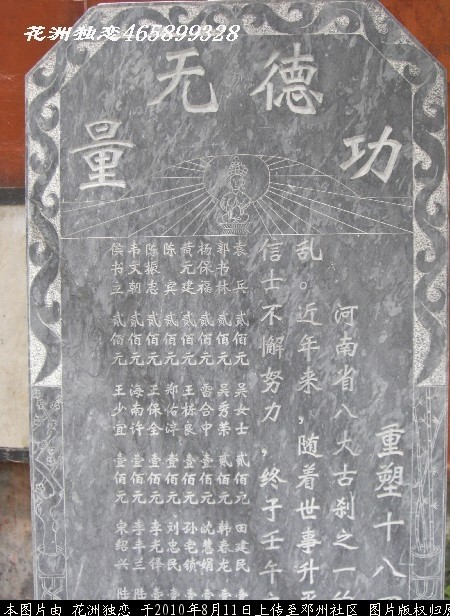 花洲独恋465899328
功德无量
重塑十八
河南省八大古刹之一的
乱。近年来,随着世事升平
信士不懈努力,终于壬午
袁兵 贰佰元 吴女士 贰佰元 田建民 壹
郭书林 贰佰元 吴秀荣 贰佰元 韩春龙 壹
杨保福 贰佰元 雷合中 壹佰元 沈慧娟 壹
黄元建 贰佰元 王栋良 壹佰元 孙宅锁 壹
陈宾 贰佰元 郑佑淳 壹佰元 刘忠民 壹
陈振志 贰佰元 王保全 壹佰元 李无停 壹
韦文朝 贰佰元 海南许 壹佰元 李斗兰 陆
侯书立 贰佰元 王少宜 壹佰元 宋绍兴 陆
本图片由 花洲独恋 于2010年8月11日上传至邓州社区 图片版权归原